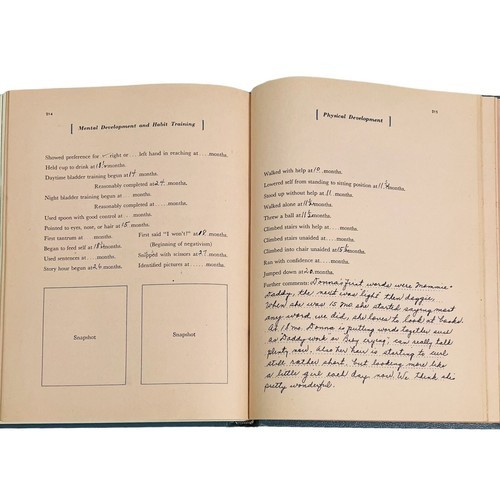 214
Mental Development and Habit Training
Showed preference for ✓ right or... left hand in reaching at.... months.
Held cup to drink at 18½ months.
Daytime bladder training begun at 14. months.
Reasonably completed at 24. months.
Night bladder training begun at.... months.
Reasonably completed at.... months.
Used spoon with good control at.. months.
Pointed to eyes, nose, or hair at 15 months.
First tantrum at.... months.
First said "I won't!" at 18. months.
Began to feed self at months.
(Beginning of negativism)
Used sentences at.... months.
Snipped with scissors at 27. months.
Story hour begun at 26 months.
Identified pictures at.... months.
Snapshot
Snapshot
215
Physical Development
Walked with help at 10. months.
Lowered self from standing to sitting position at 11½ months.
Stood up without help at 11. months.
Walked alone at 11½ months.
Threw a ball at 11½ months.
Climbed stairs with help at.... months.
Climbed stairs unaided at.... months.
Climbed into chair unaided at 15½ months.
Ran with confidence at.... months.
Jumped down at 20. months.
Further comments: Donna's first words were Mommie +
Daddy, the next was light then doggie.
When she was 15 mo she started saying most
any word we did, she loves to look at books.
At 18 mo. Donna is putting words together such
as Daddy work or Baby crying, can really talk
plenty now. Also her hair is starting to curl
still rather short, but looking more like
a little girl each day now. We think she's
pretty wonderful.